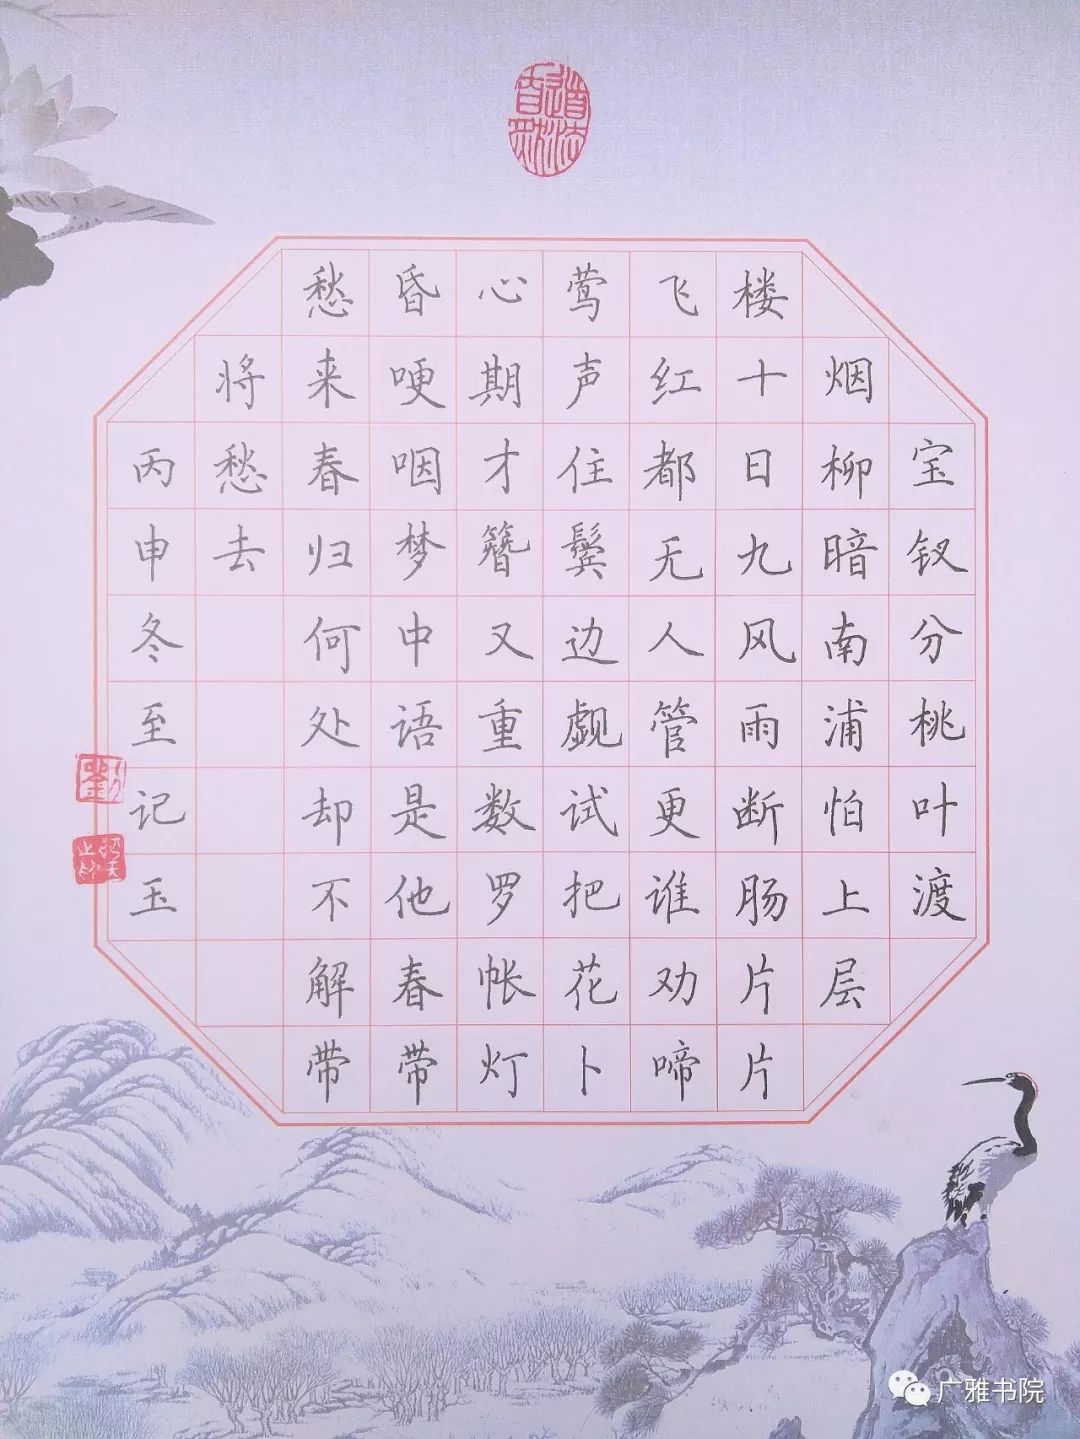 宝钗分桃叶渡
烟柳暗南浦怕上层
楼十日九风雨断肠片片
飞红都无人管更谁劝啼
莺声住鬓边觑试把花卜
心期才簪又重数罗帐灯
昏哽咽梦中语是他春带
愁来春归何处却不解带
将愁去
丙申冬至记玉
广雅书院